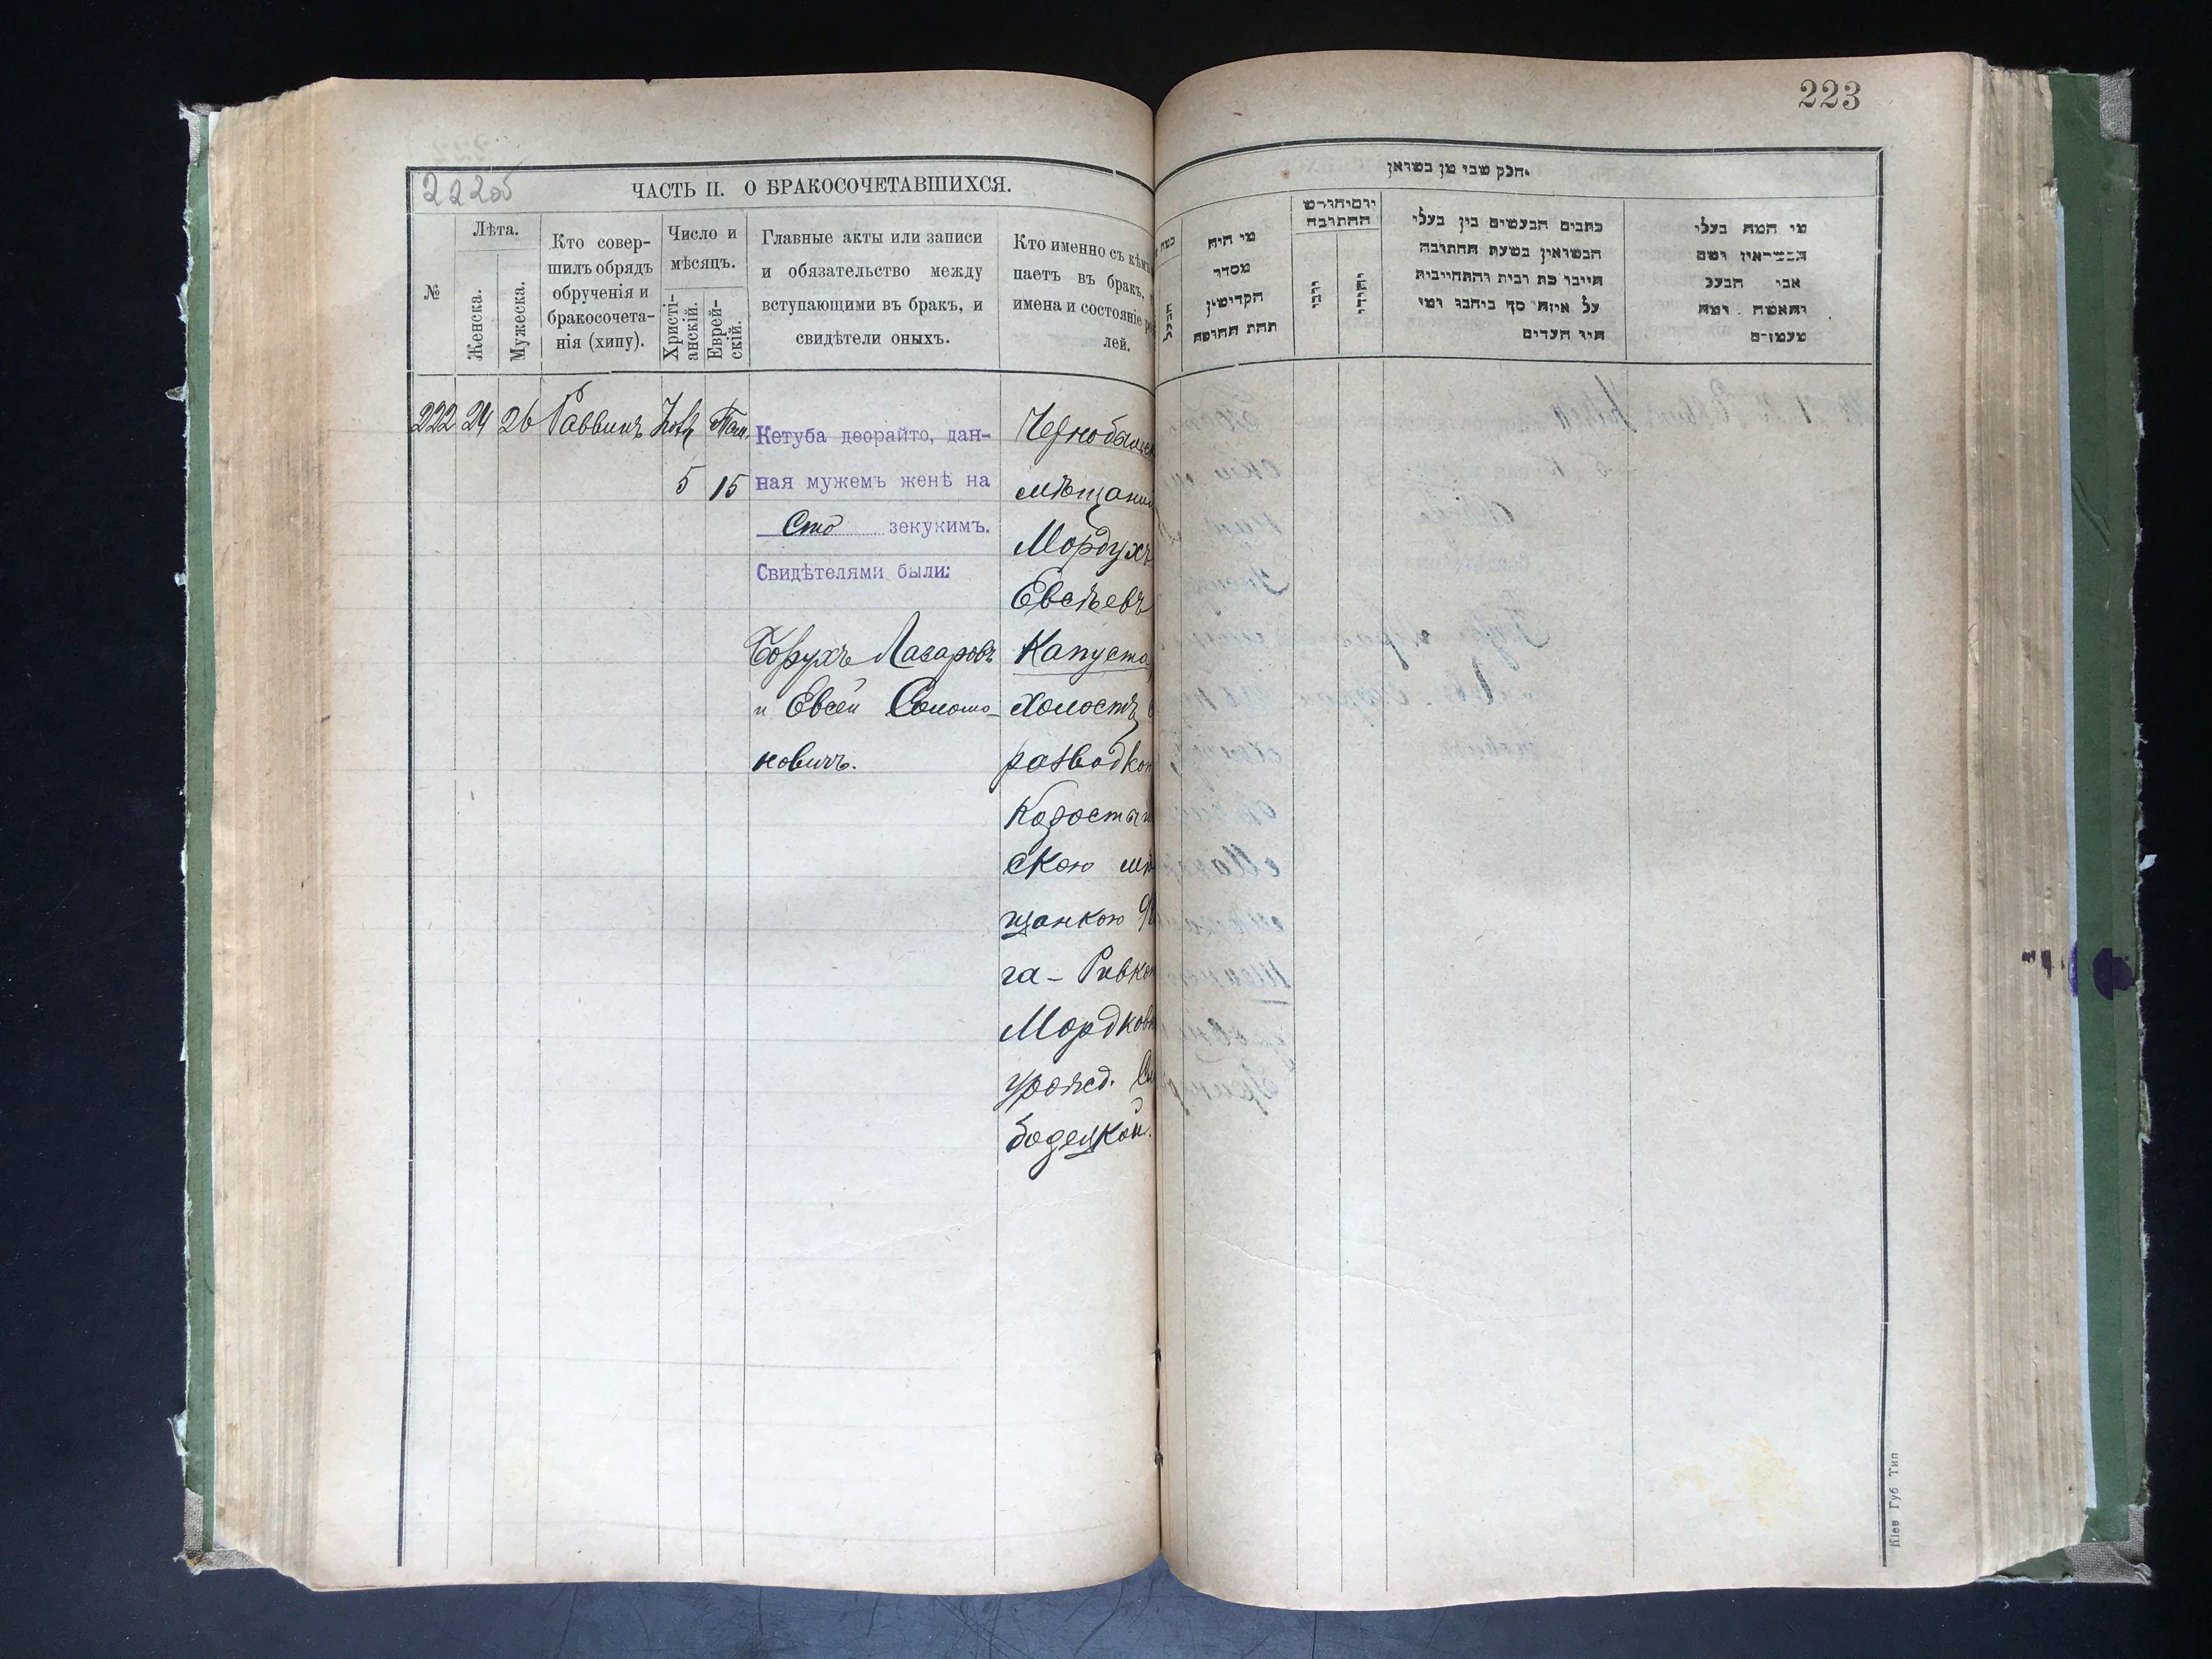 223
222об
ЧАСТЬ II. О БРАКОСОЧЕТАВШИХСЯ.
№
Лѣта.
Женска.
Мужеска.
Кто совер-
шилъ обрядъ
обрученія и
бракосочета-
нія (хипу).
Число и
мѣсяцъ.
Христі-
анскій.
Еврей-
скій.
Главные акты или записи
и обязательство между
вступающими въ бракъ, и
свидѣтели оныхъ.
Кто именно съ кѣмъ
паетъ въ бракъ,
имена и состояніе ро
лей.
222 24 26 Раввинъ
5 15
Кетуба деорайто, дан-
ная мужемъ женѣ на
Сто зекукимъ.
Свидѣтелями были:
Борухъ Лазаровъ
и Евсей Соломо-
новичъ.
мѣщанин
Мордухъ
Евсѣевъ
Капуста
холостъ
разводкою
скою мѣ
щанкою
га-Ривкою
Мордков
урожд. Сл
бодецкой.
חלק שני מן נשואין
מי היה
מסדר
הקדושין
תחת החופה
יום וחודש
החתונה
כתבים הנעשים בין בעלי
הנשואין בשעת החתונה
היינו כת ובית והתחייבות
על איזה סך ביחבו ומי
היו העדים
מי המה בעלי
הנשואין ושם
אבי הבעל
והאשה ומה
מעמדם
Кіев Губ Тип